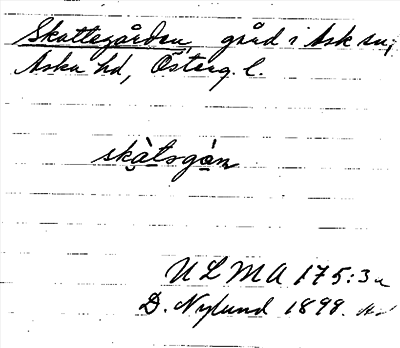 Skattegården, gård i Ask sn,
Aska hd, Österg. l.
skàtsgán
ULMA 175:3a
D. Nylund 1898.